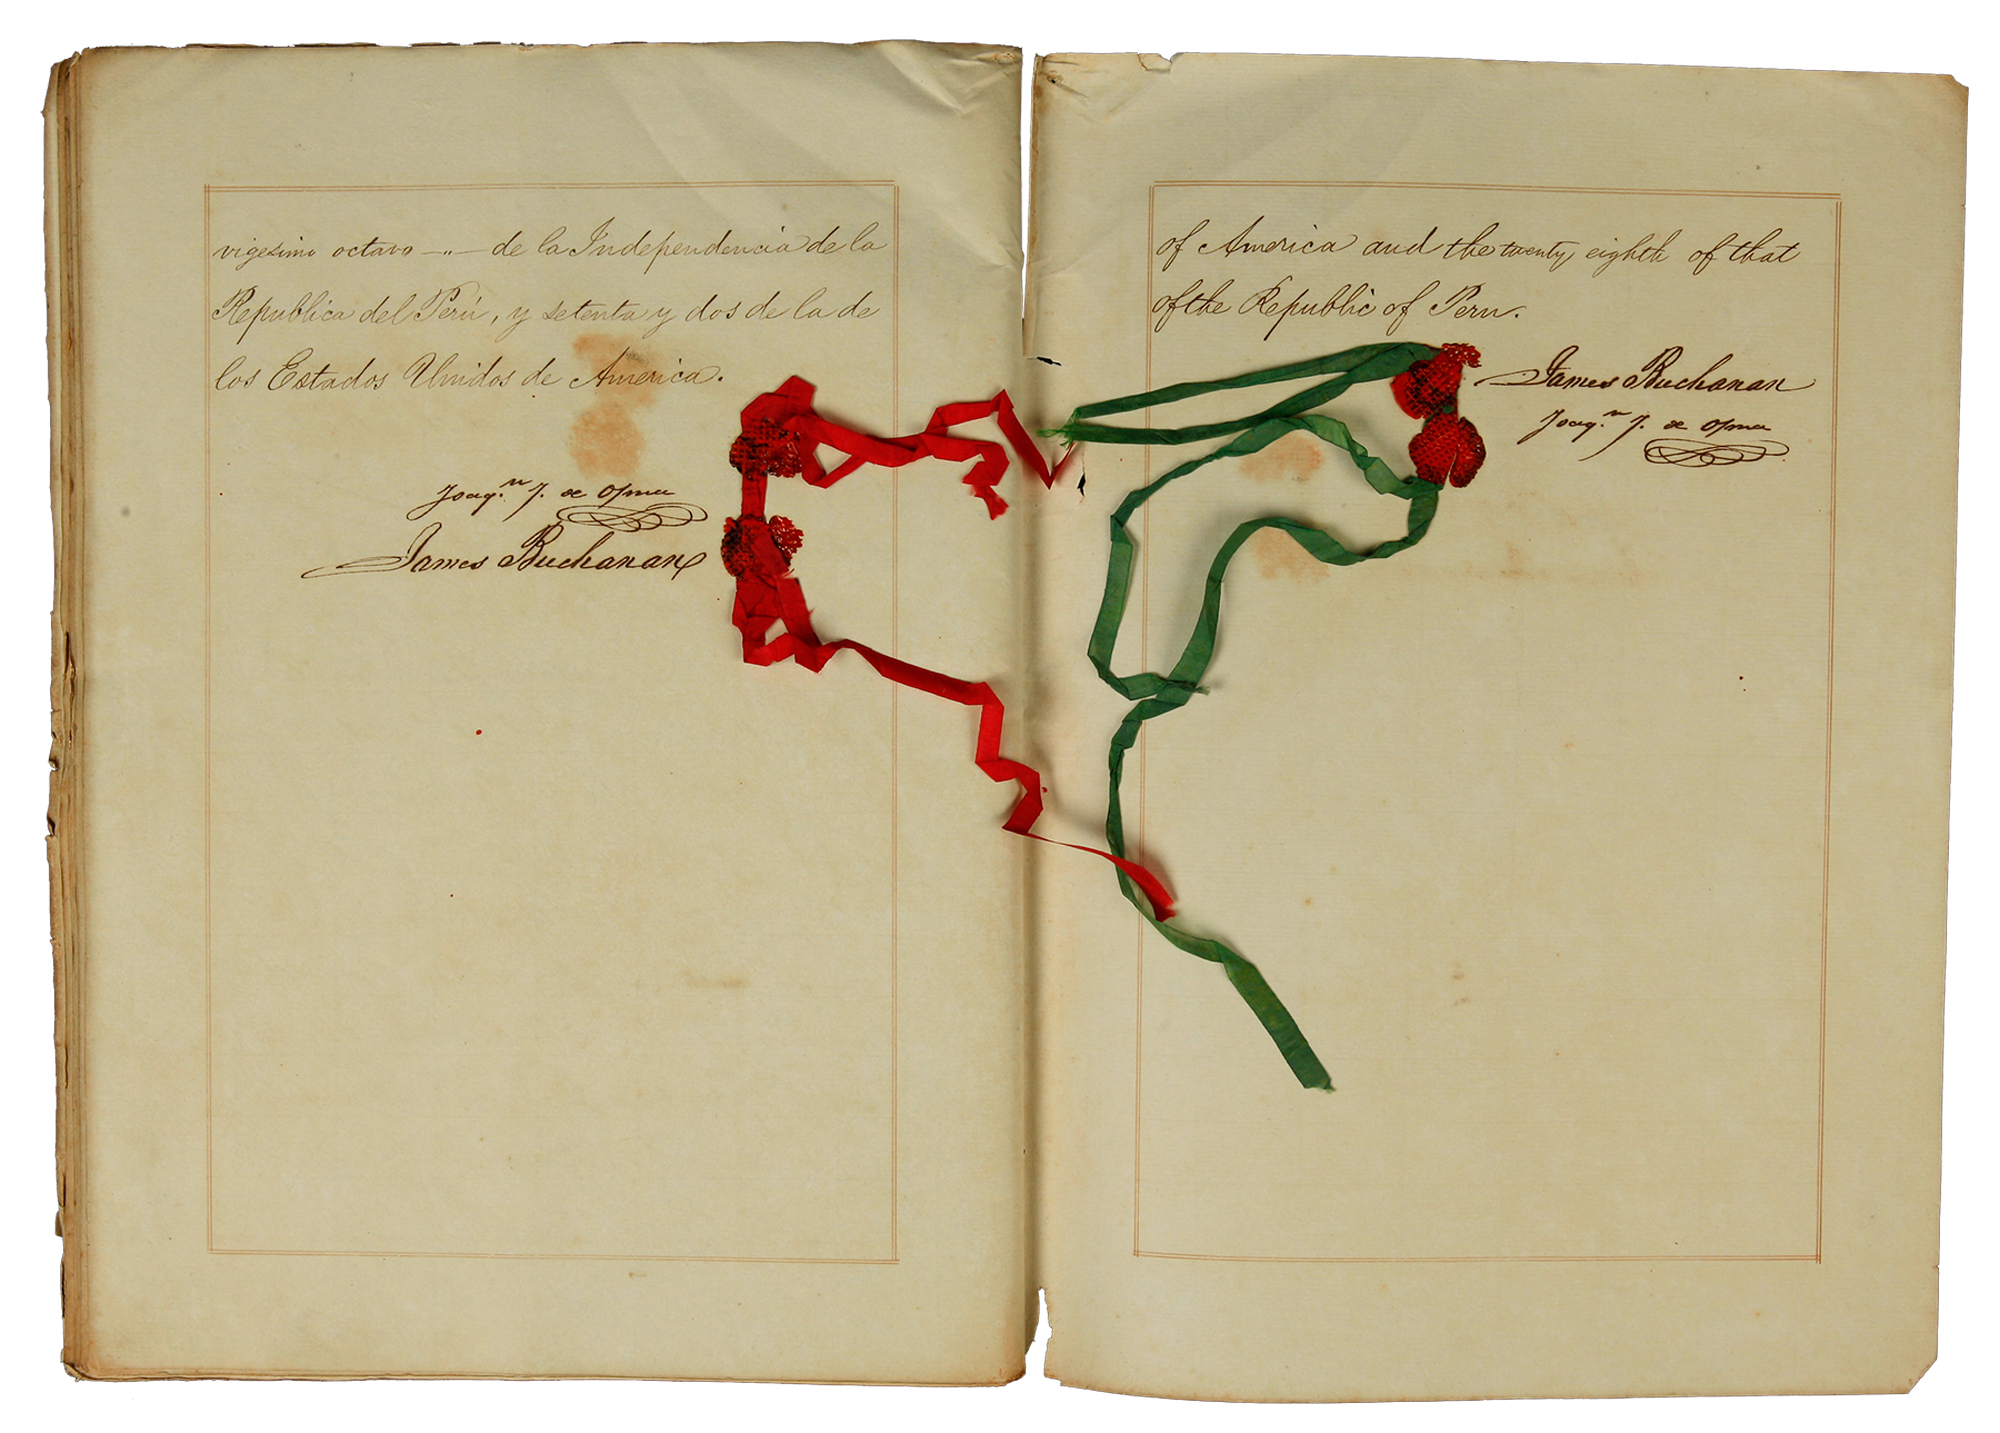 vigesimo octavo —"— de la Independencia de la
Republica del Perú, y setenta y dos de la de
los Estados Unidos de America.
Joaqn. J. de Osma
James Buchanan
of America and the twenty eighth of that
of the Republic of Peru.
James Buchanan
Joaqn. J. de Osma